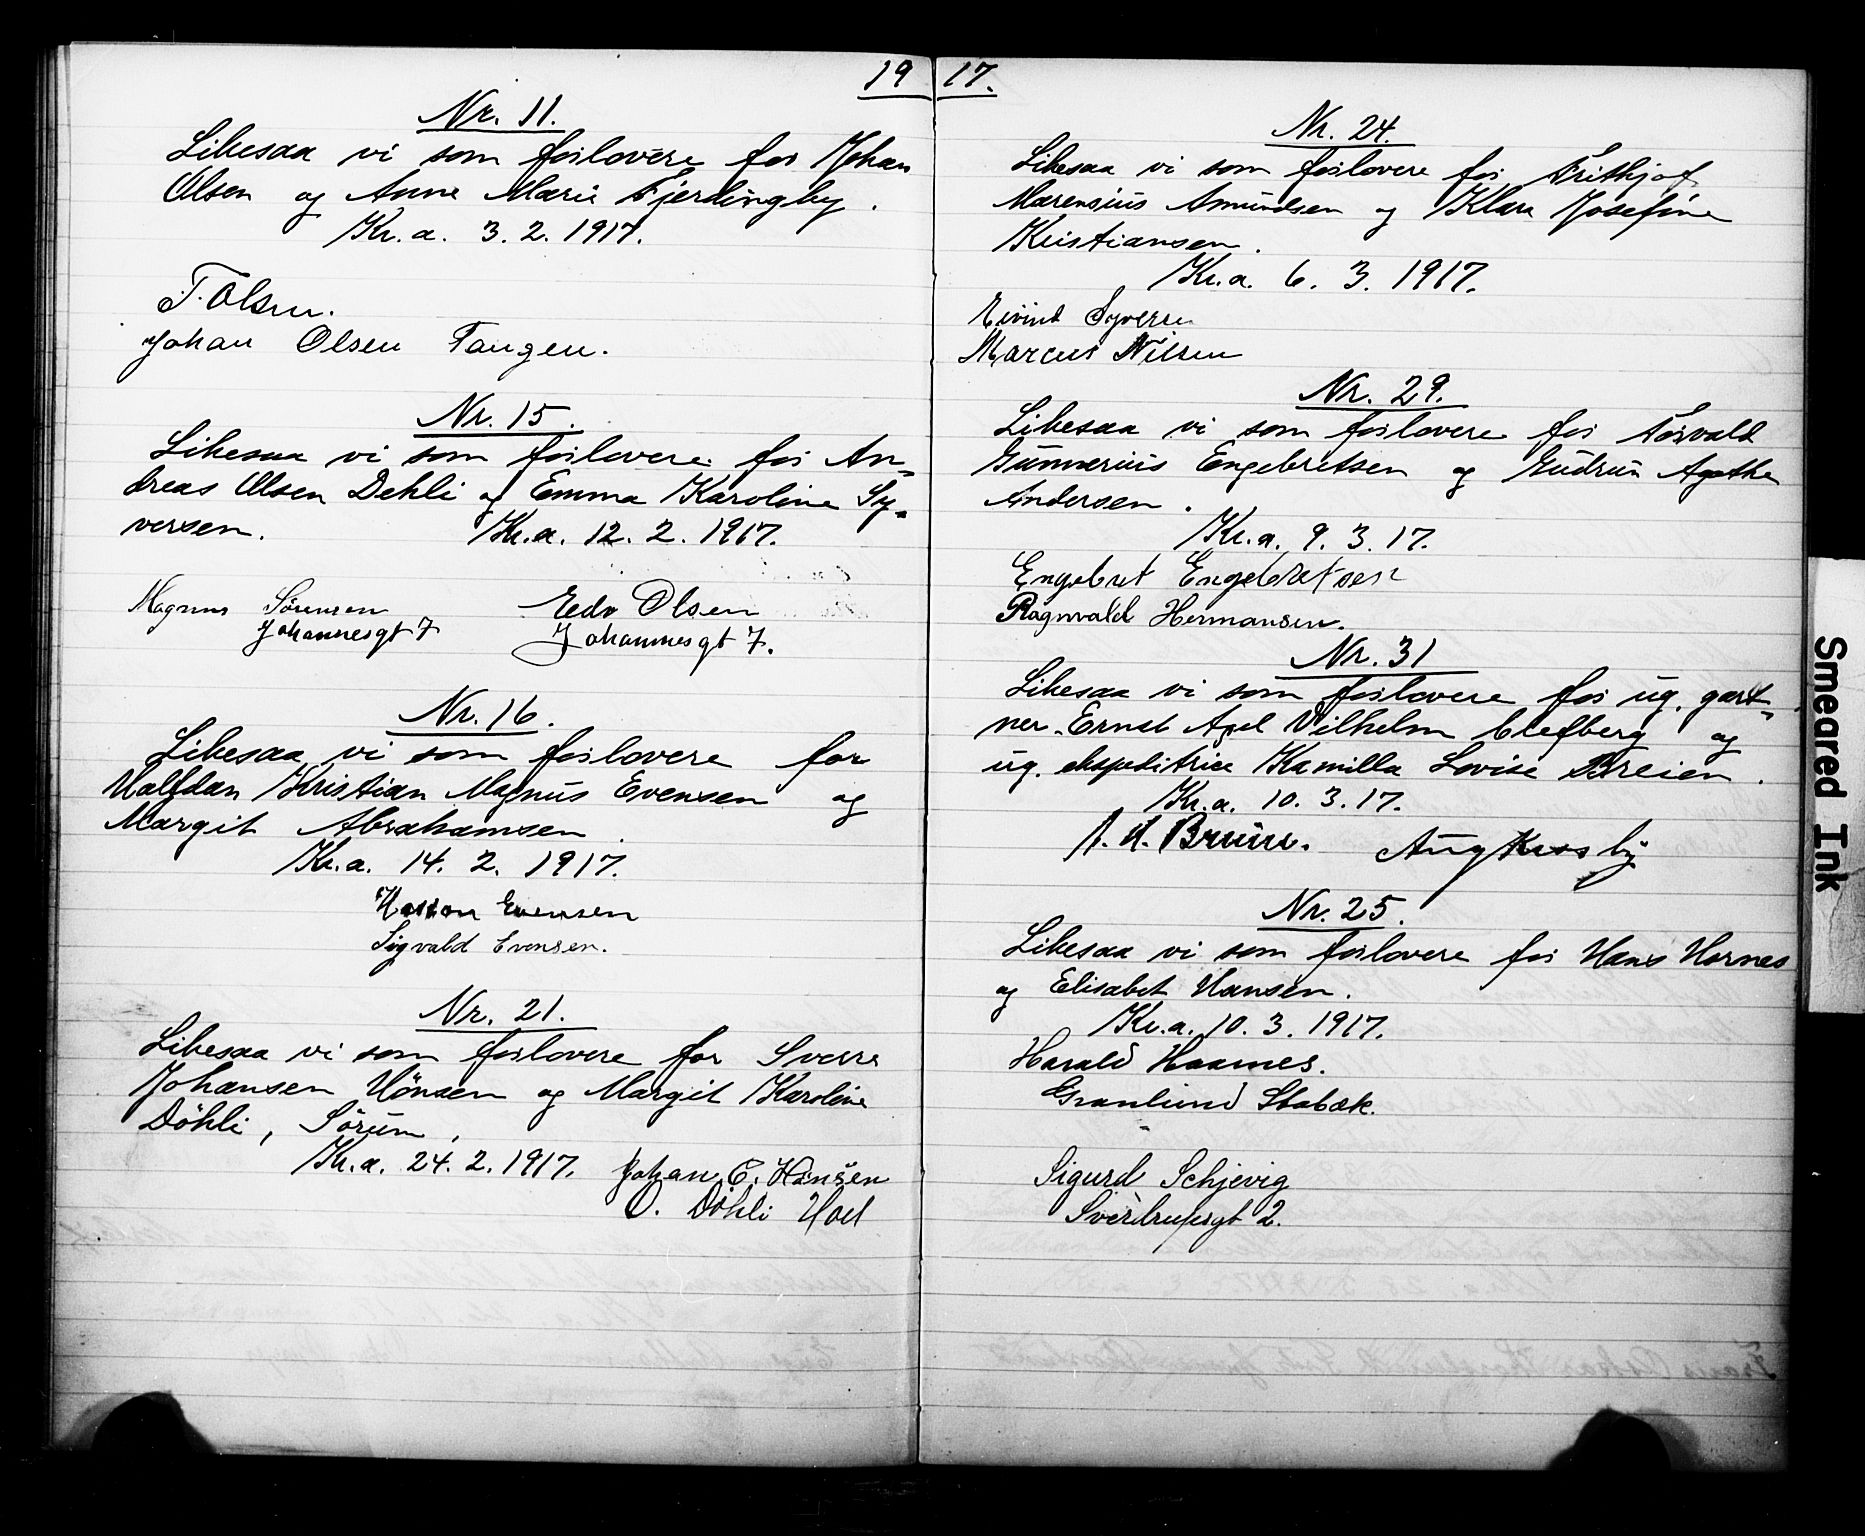 1917.
Nr. 11.
Likesaa vi som forlovere for Johan
Olsen og Anne Marie Fjerdingby.
Kr.a. 3. 2. 1917.
T. Olsen.
Johan Olsen Tangen.
Nr. 15.
Likesaa vi som forlovere for An-
dreas Olsen Dehli og Emma Karoline Sy-
versen. Kr.a. 12. 2. 1917.
Magnus Sörensen
Johannesgt 7
Olsen
Johannesgt 7.
Nr. 16.
Likesaa vi som forlovere for
Halfdan Kristian Magnus Evensen og
Margit Abrahamsen.
Kr.a. 14. 2. 1917.
Evensen
Sigvald Evensen.
Nr. 21.
Likesaa vi som forlovere for Sverre
Johansen Hönsen og Margit Karoline
Döhli, Sörum,
Kr.a. 24. 2. 1917. Johan C. Hönsen
O. Döhli Hoel
Nr. 24.
Likesaa vi som forlovere for Frithjof
Marensius Amundsen og Klara Josefine
Kristiansen.
Kr.a. 6. 3. 1917.
Eivind
Marcus Nilsen
Nr. 29.
Likesaa vi som forlovere for Torvald
Gunnerius Engebretsen og Gudrun Agathe
Andersen.
Kr.a. 9. 3. 17.
Engebret Engebretsen
Ragnvald Hermansen.
Nr. 31
Likesaa vi som forlovere for ug. gart-
ner Ernst Axel Vilhelm Clefberg og
ug. ekspeditrice Kamilla Lovise Breien.
Kr.a. 10. 3. 17.
Aug
Nr. 25.
Likesaa vi som forlovere for Hans Hornes
og Elisabet Hansen.
Kr.a. 10. 3. 1917.
Harald Haarnes.
Granlund Stabæk.
Sigurd Schjevig
Sverdrupsgt 2.
Smeared Ink